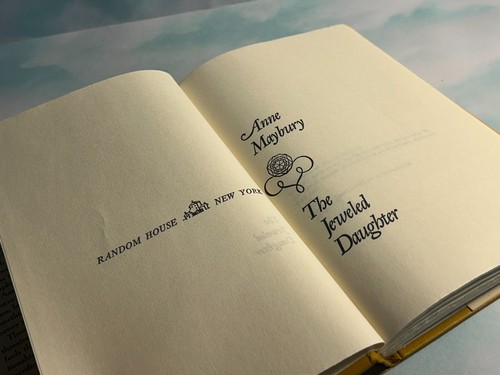 RANDOM HOUSE NEW YORK
Anne
Maybury
The
Jeweled
Daughter